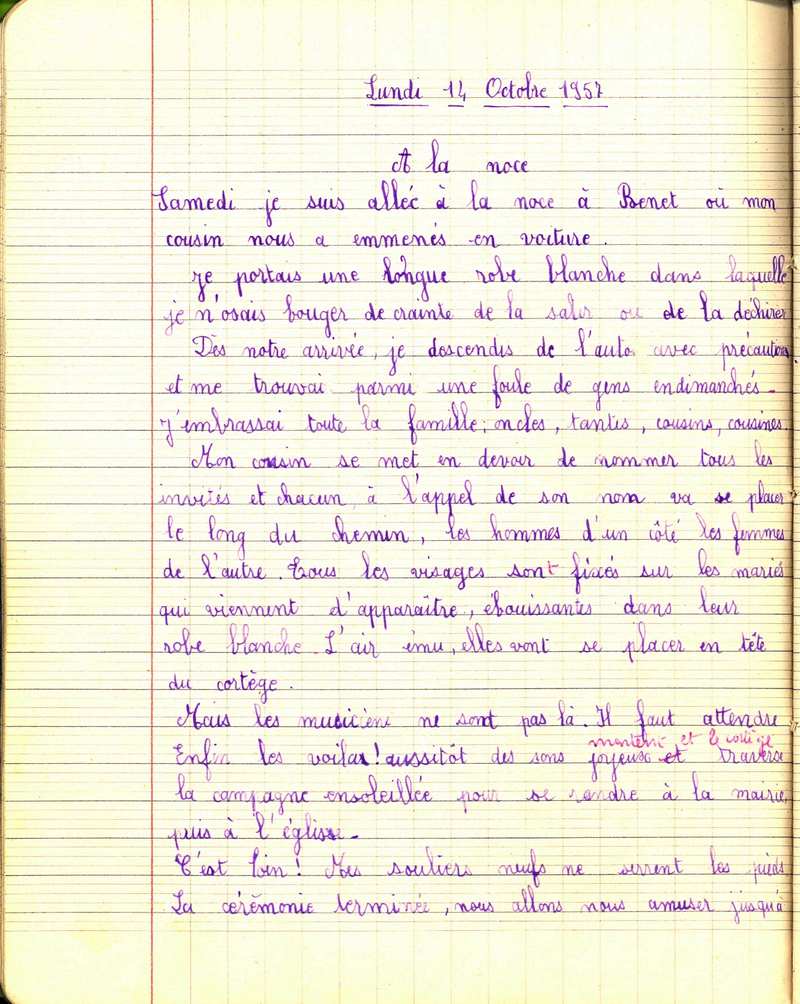 Lundi 14 Octobre 1957
A la noce
Samedi je suis allée à la noce à Benet où mon
cousin nous a emmenés en voiture.
Je portais une longue robe blanche dans laquelle
je n'osais bouger de crainte de la salir ou de la déchirer
Dès notre arrivée, je descendis de l'auto avec précautions
et me trouvai parmi une foule de gens endimanchés.
J'embrassai toute la famille; oncles, tantes, cousins, cousines.
Mon cousin se met en devoir de nommer tous les
invités et chacun, à l'appel de son nom va se placer
le long du chemin, les hommes d'un côté les femmes
de l'autre. Tous les visages sont fixés sur les mariés
qui viennent d'apparaître, ébouissantes dans leur
robe blanche. L'air ému, elles vont se placer en tête
du cortège.
Mais les musiciens ne sont pas là. Il faut attendre
montent et le cortège
Enfin les voilà! aussitôt des sons joyeux et traverse
la campagne ensoleillée pour se rendre à la mairie,
puis à l'église.
C'est loin! Mes souliers neufs me serrent les pieds
La cérémonie terminée, nous allons nous amuser jusqu'à